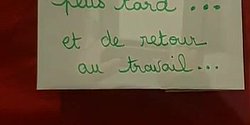 plus tard ...
et de retour
au travail ...